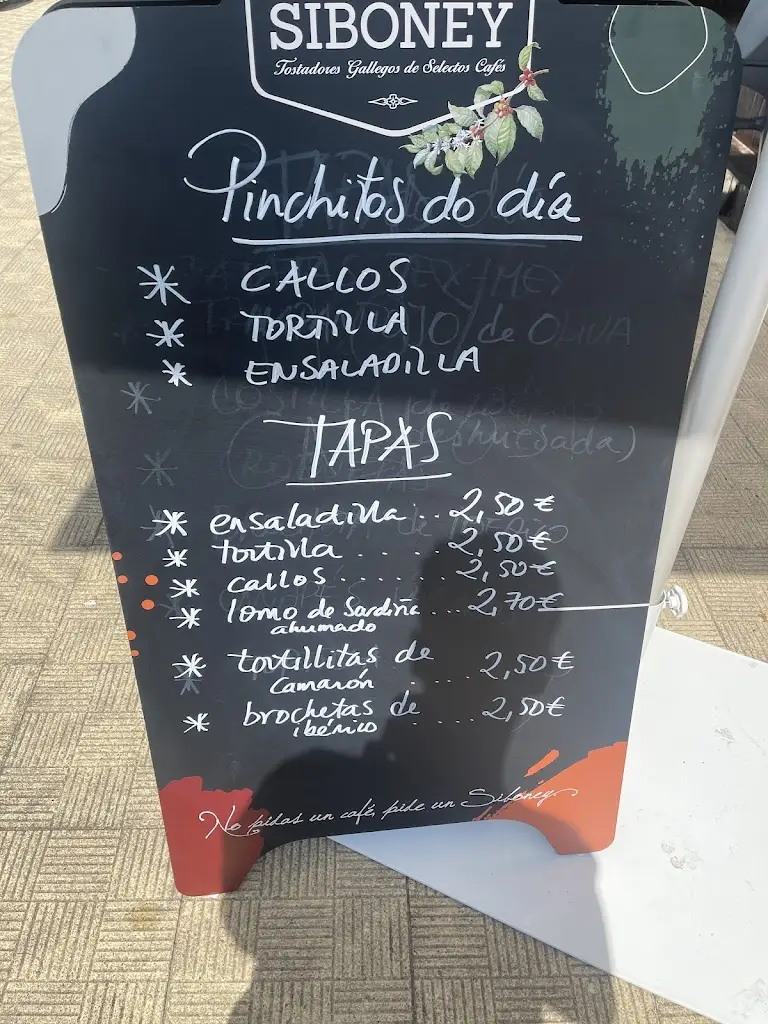 SIBONEY
Tostadores Gallegos de Selectos Cafés
Pinchitos do día
* CALLOS
* TORTILLA
* ENSALADILLA
TAPAS
* ensaladilla .. 2,50 €
* tortilla .... 2,50 €
* callos ...... 2,50 €
* lomo de Sardiña ... 2,70 €
ahumado
* tortillitas de
Camarón ..... 2,50 €
* brochetas de .... 2,50 €
ibérico
No pidas un café, pide un Siboney